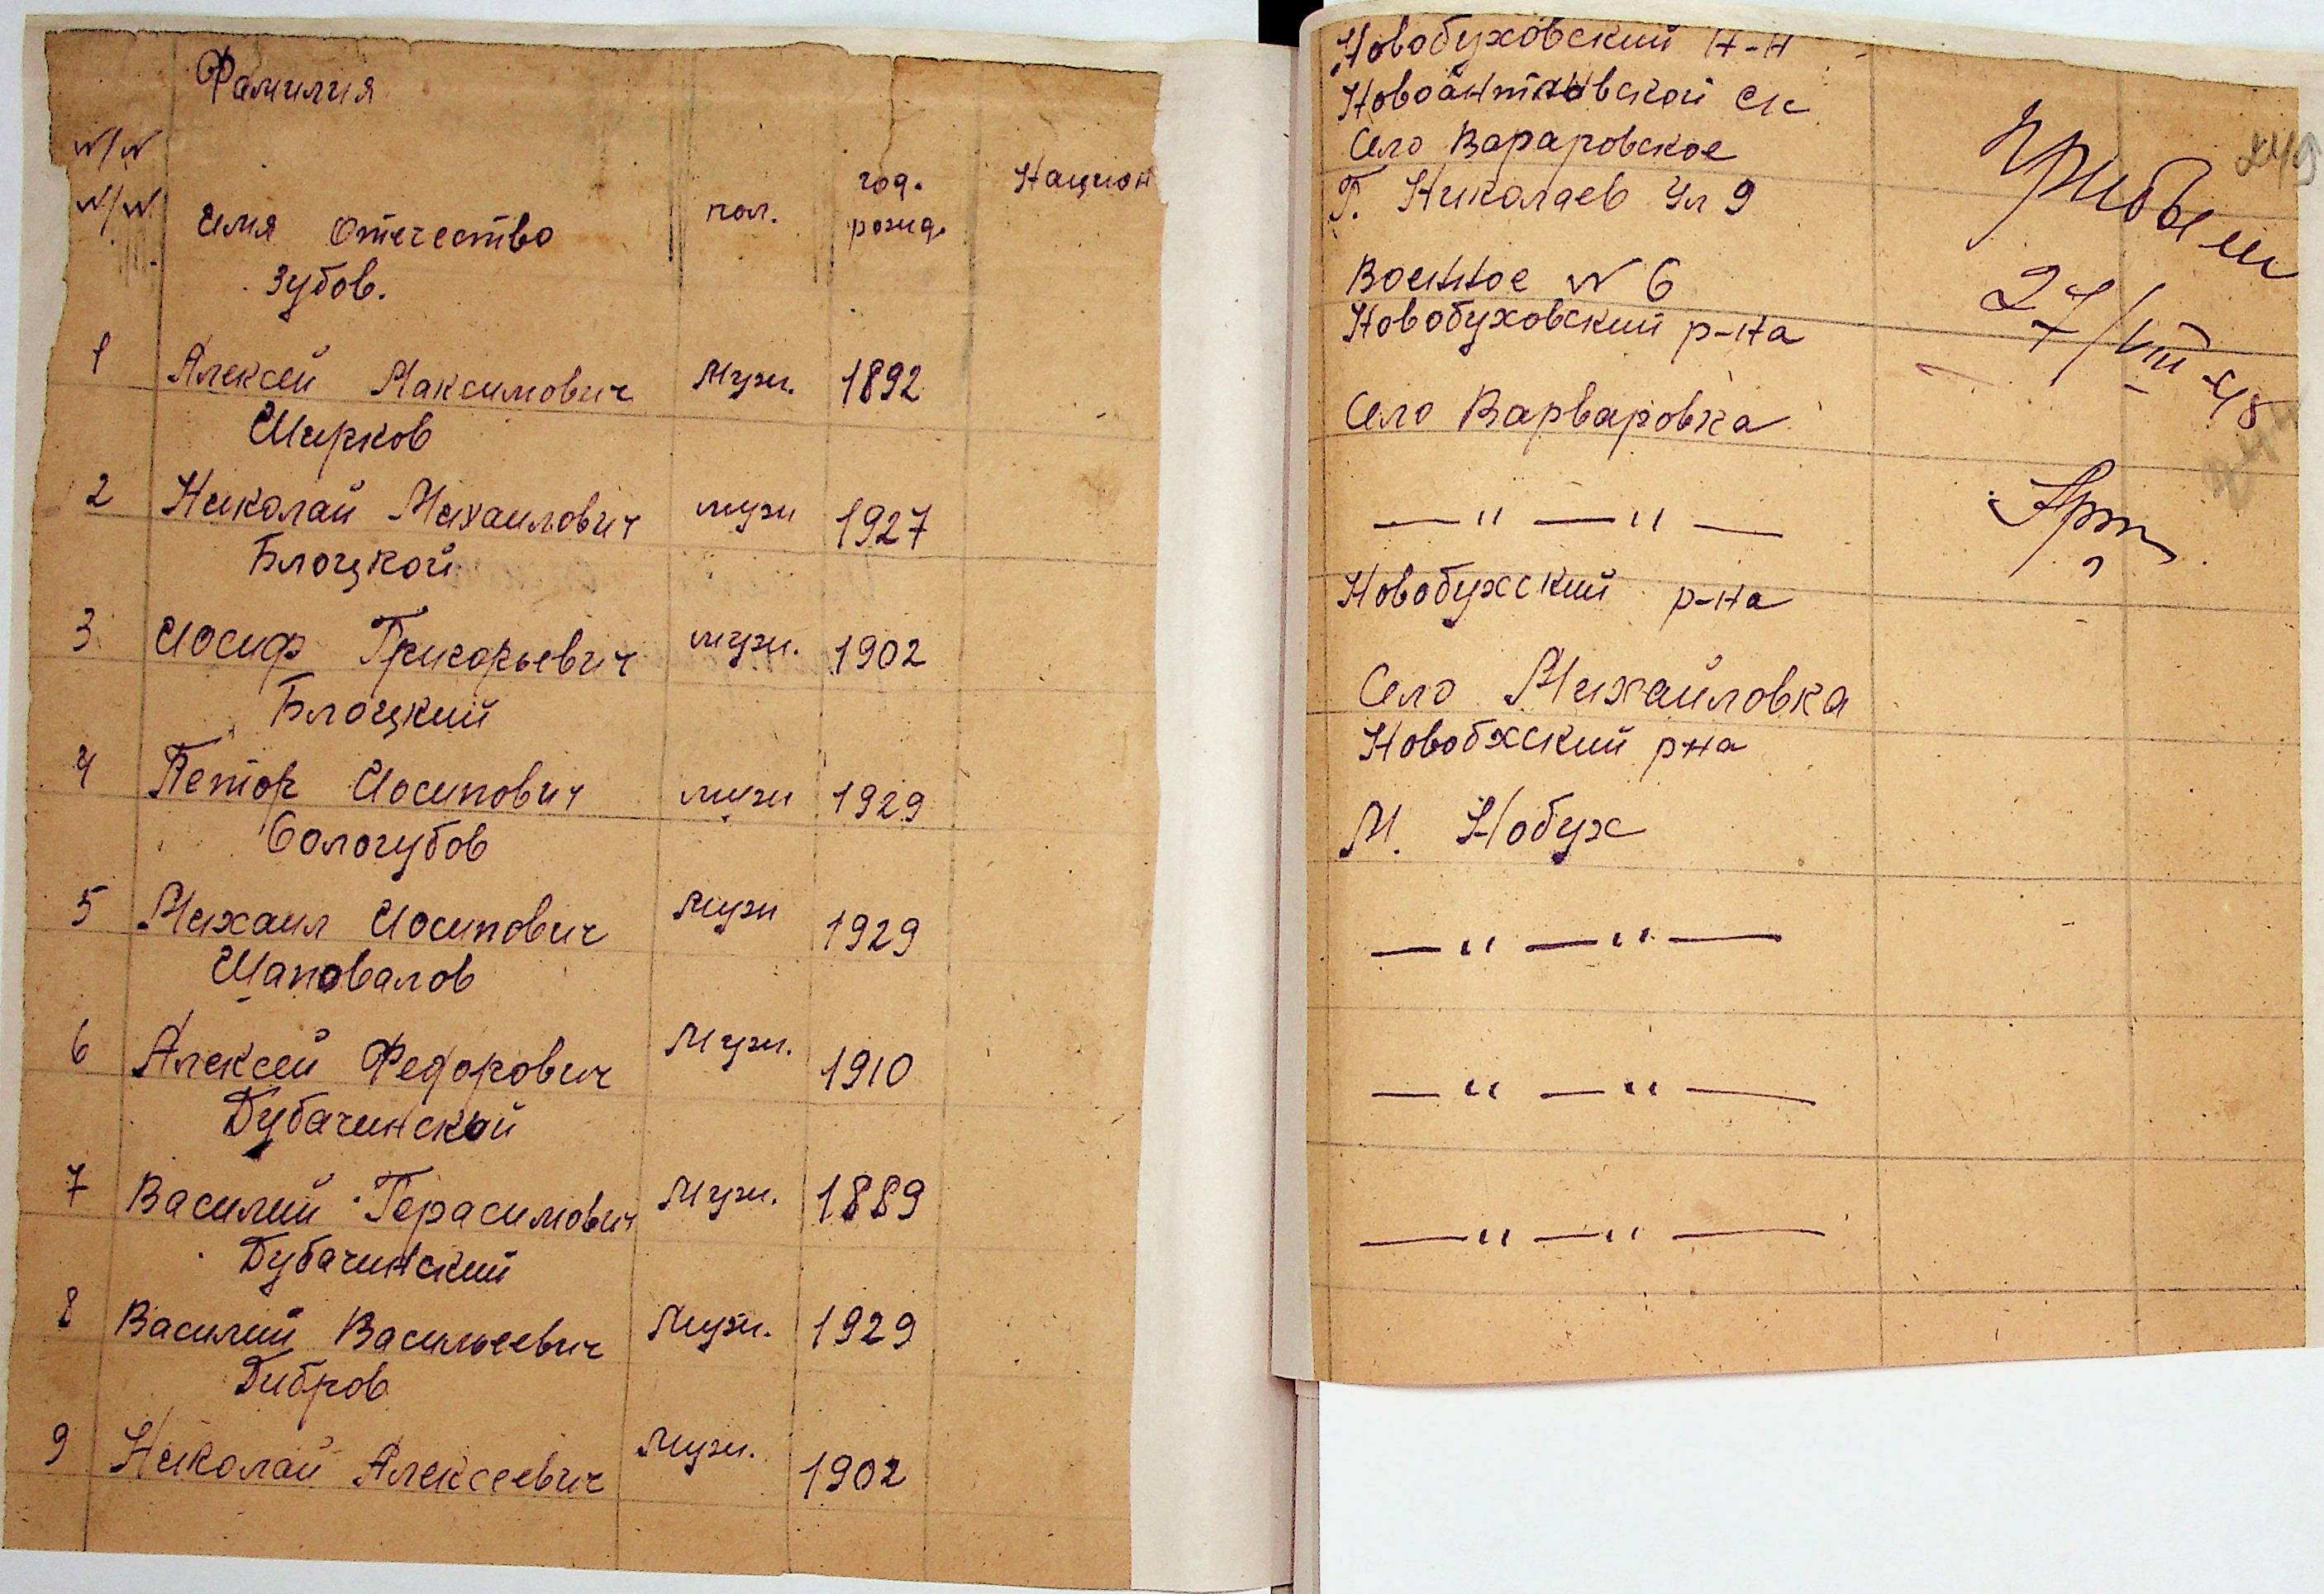 Фамилия
№/№
№/№
имя отчество
пол.
год.
рожд.
Национ
Зубов.
1 Алексей Максимович Мужч. 1892
Ширков
2 Николай Михаилович мужч 1927
Блоцкой
3 Иосиф Григорьевич мужч. 1902
Блоцкий
4 Петор Иосипович мужч 1929
Сологубов
5 Михаил Иосипович Мужч 1929
Шаповалов
6 Алексей Федорович Мужч. 1910
Дубачинской
7 Василий Герасимович Мужч. 1889
Дубачинский
8 Василий Васильеевич Мужч. 1929
Дибров
9 Николай Алексеевич Мужч. 1902
Новобуховский
Село Вараровское
Г. Николаев Ул 9
Военное № 6
Новобуховский р-на
Село Варваровка
— " — " —
Новобухский р-на
Село Михайловка
Новобхский рна
М. Нобух
— " — " —
— " — " —
— " — " —
Прибыли
27/VIII-45